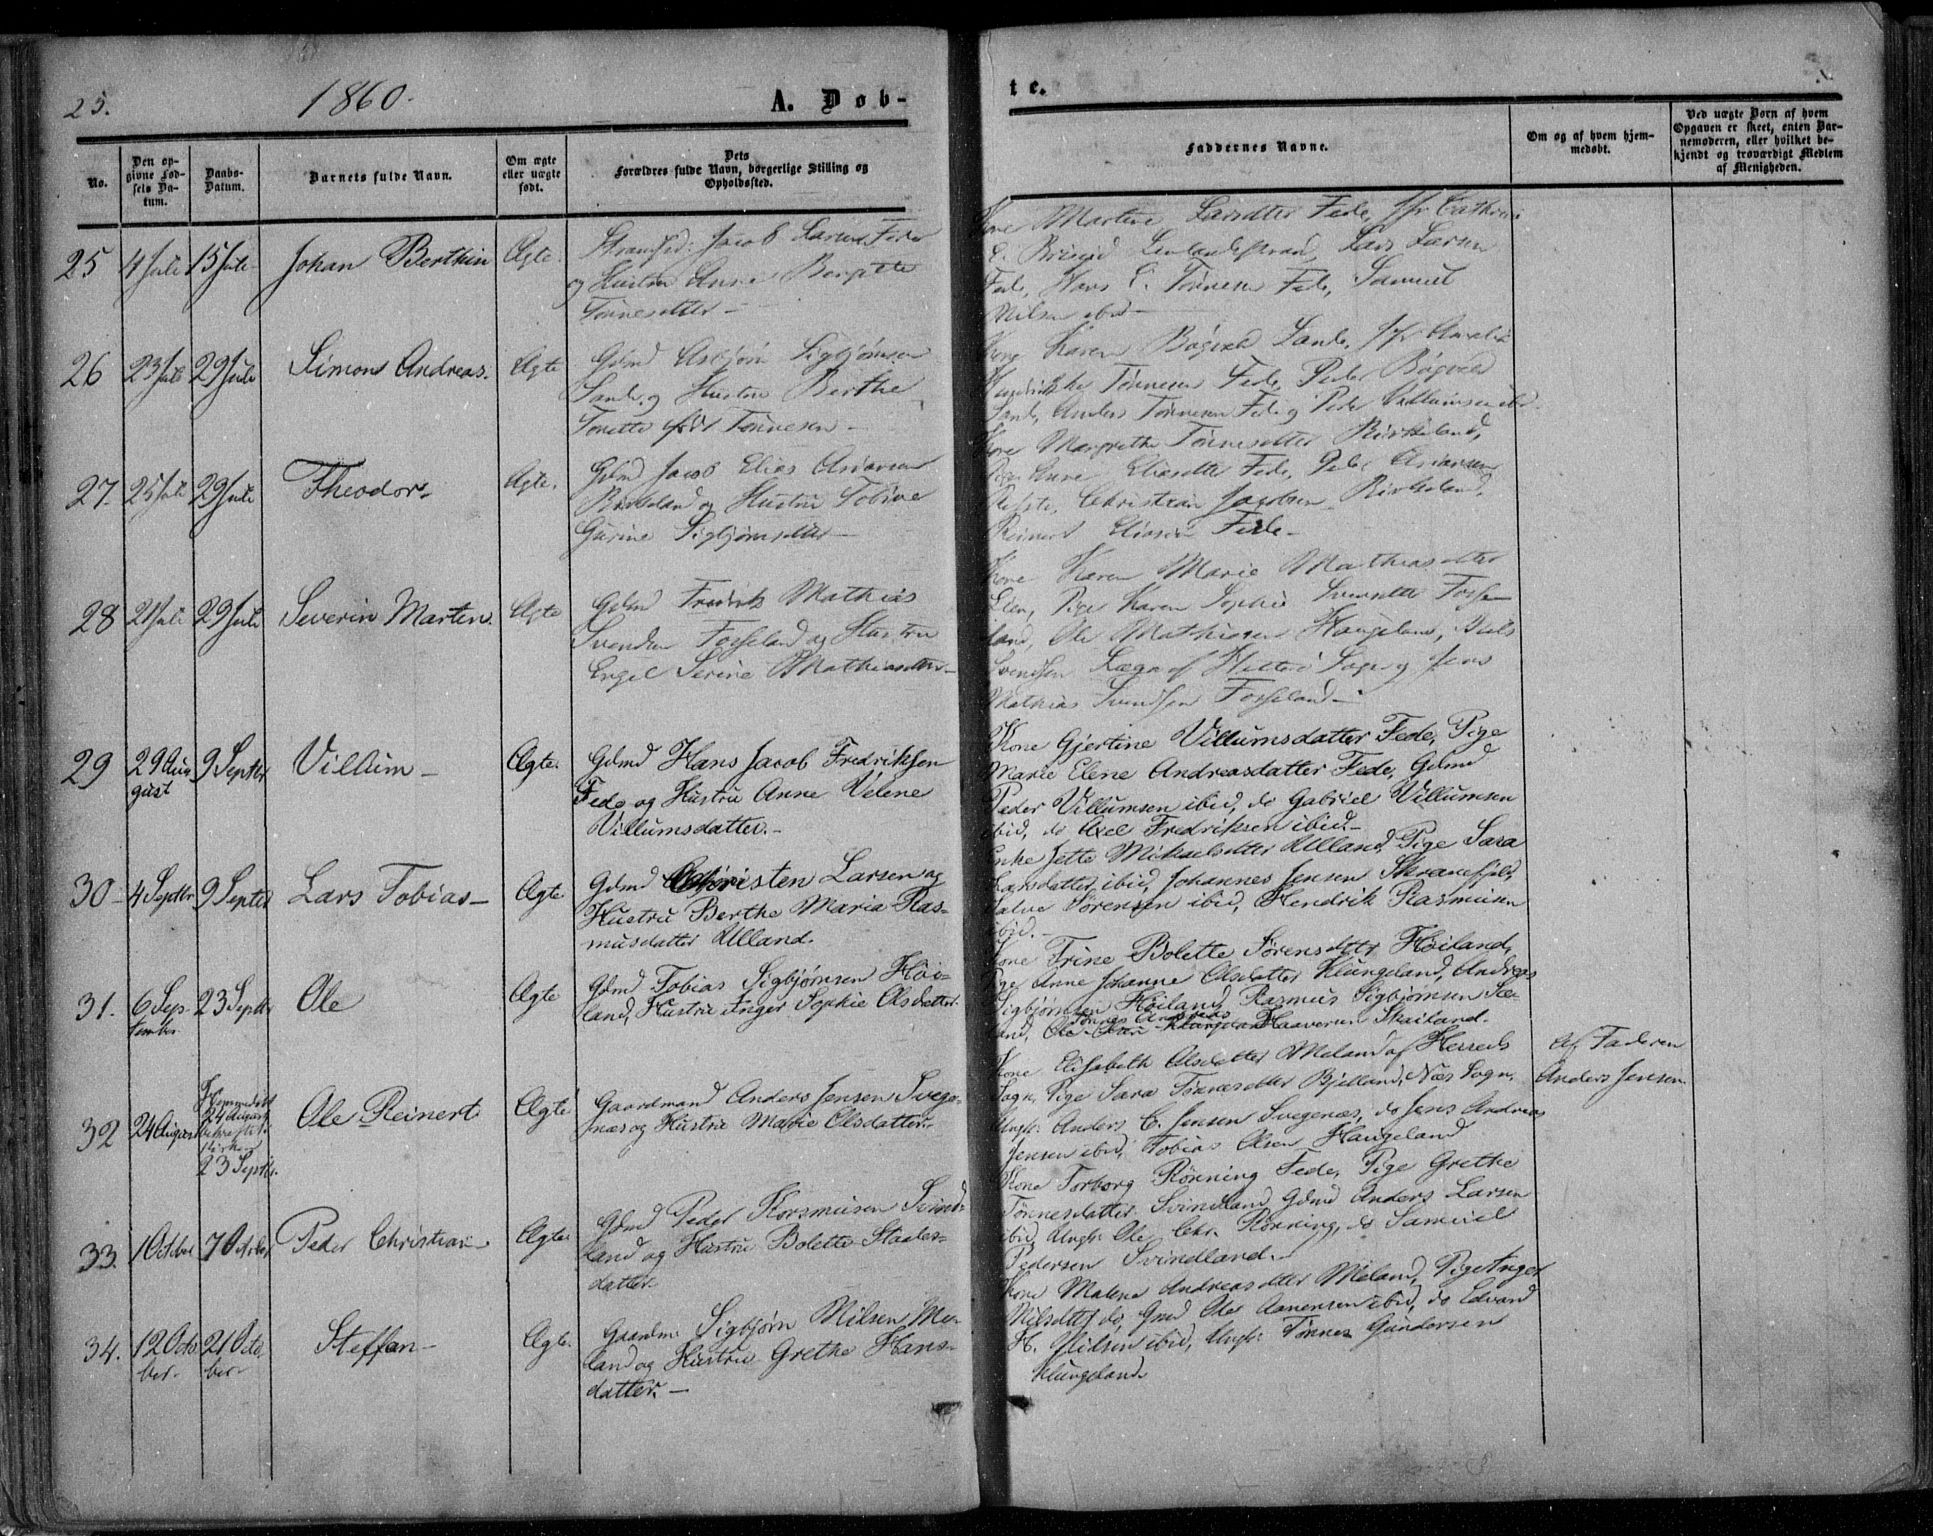 25.
1860.
A. Døb-
No.
Den op-
givne Fød-
sels Da-
tum.
Daabs-
Datum.
Barnets fulde Navn.
Om ægte
eller uægte
født.
Dets
Forældres fulde Navn, borgerlige Stilling og
Opholdssted.
25
4 Juli
15 Juli
Johan Berthin
Ægte.
Jacob Larsen Fede
og Hustru Anne Bergitte
Tønnesdatter -
26
23 Juli
29 Juli
Simons Andreas.
Ægte
Gdmd Asbjørn Sigbjørnsen
Sande og Hustru Berthe
Tonette født Tønnesen -
27.
25 Juli
29 Juli
Theodor.
Ægte.
Gdmd Jacob Elias Asiarsen
Birkeland og Hustru Tobine
Gurine Sigbjørnsdatter -
28
21 Juli
29 Juli
Severin Martin.
Ægte
Gdmd Fredrik Mathias
Svendsen Fosseland og Hustru
Engel Serine Mathiasdatter -
29
29 Au-
gust
9 Septbr
Villum -
Ægte.
Gdmd Hans Jacob Fredriksen
Fede og Hustru Anne Velene
Villumsdatter. -
30 -
4 Septbr
9 Septbr
Lars Tobias -
Ægte
Gdmd Christen Larsen og
Hustru Berthe Maria Ras-
musdatter Ulland.
31.
6 Sep-
tember
23 Septbr
Ole
Ægte
Gdmd Tobias Sigbjørnsen Høi-
land, Hustru Inger Sophie Olsdatter
32
24 August
Hjemmedøbt
24 August
23 Septbr.
Ole Reinert
Ægte
Gaardmand Anders Jensen Svege-
næs og Hustru Marie Olsdatter -
33.
1 October
7 October
Peder Christian -
Ægte.
Gdmd Peder Rasmusen Svind-
land og Hustru Bolette Staales-
datter.
34.
12 Octo-
ber -
21 Octo-
ber -
Steffen -
Ægte.
Gaardm. Sigbjørn Nilsen Me-
land og Hustru Grethe Hans-
datter. -
te.
Faddernes Navne.
Om og af hvem hjem-
medøbt.
Ved uægte Børn af hvem
Opgaven er skeet, enten Bar-
nemoderen, eller hvilket be-
kjendt og troværdigt Medlem
af Menigheden.
Kone Martine Larsdtter Fede,
Lars Larsen
Fede, Hans C. Tønnesen Fede, Samuel
Nilsen ibid -
Kone Karen Bøgvald Sande,
Tønnesen Fede, Peder Bøgvald
Sande, Anders Tønnesen Fede og Peder Villumsen ibid.
Kone Margrethe Tønnesdtter Birkeland,
Pige Anne Eliasdtter Fede, Peder Asiarsen
Refsti, Christian Jacobsen Birkeland,
Reinert Eliasen Fede -
Kone Karen Marie Mathiasdatter
Eien, Pige Karen Sophie Svensdtter Fosse-
land, Ole Mathiasen Haugeland, Niels
Svendsen Lægn af Hitterø Sogn og Jens
Mathias Svendsen Fosseland -
Kone Gjertine Villumsdatter Fede, Pige
Marie Elene Andreasdatter Fede, Gdmd
Peder Villumsen ibid, do Gabriel Villumsen
ibid, do Axel Fredriksen ibid. -
Enke Jette Mikaelsdtter Ulland, Pige Sara
Larsdatter ibid, Johannes Jensen Skranefjeld,
Salve Sørensen ibid, Hendrik Rasmusen
ibid. -
Kone Trine Bolette Sørensdatter Høiland,
Pige Anne Johanne Olsdatter Klungeland, Andreas
Sigbjørnsen Høiland, Rasmus Sigbjørnsen Sæ-
land, Tønnes Andreas Haaversen Skailand.
Kone Elisabeth Olsdatter Meland af Herreds
Sogn, Pige Sara Tønnesdtter Bjelland, Næs Sogn,
Ungk. Anders C. Jensen Svegenæs, do Jens Andreas
Jensen ibid, Tobias Olsen Haugeland
Af Faderen
Anders Jensen
Kone Torborg Rønning Fede, Pige Grethe
Tønnesdatter Svindland, Gdmd Anders Larsen
ibid, Ungk. Ole Chr. Rønning, do Samuel
Pedersen Svindland.
Kone Malene Andreasdtter Meland, Pige Inger
Nilsdtter do, Gmd Ole Aanensen ibid, do Edvard
H. Nilsen ibid, Ungk. Tønnes Gundersen
Klungeland